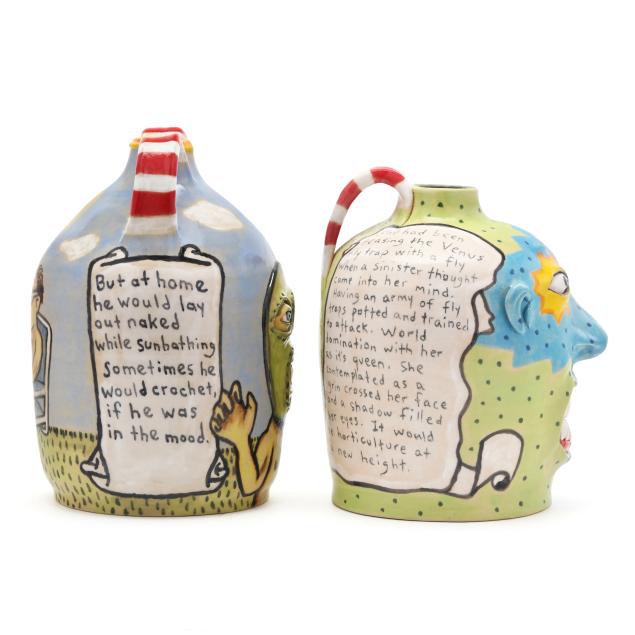 But at home
he would lay
out naked
while sunbathing
sometimes he
would crochet,
if he was
in the mood.
had been
teasing the Venus
fly trap with a fly
when a sinister thought
came into her mind.
Having an army of fly
traps potted and trained
to attack. World
domination with her
as it's queen. She
contemplated as a
grin crossed her face
and a shadow filled
her eyes. It would
horticulture at
new height.